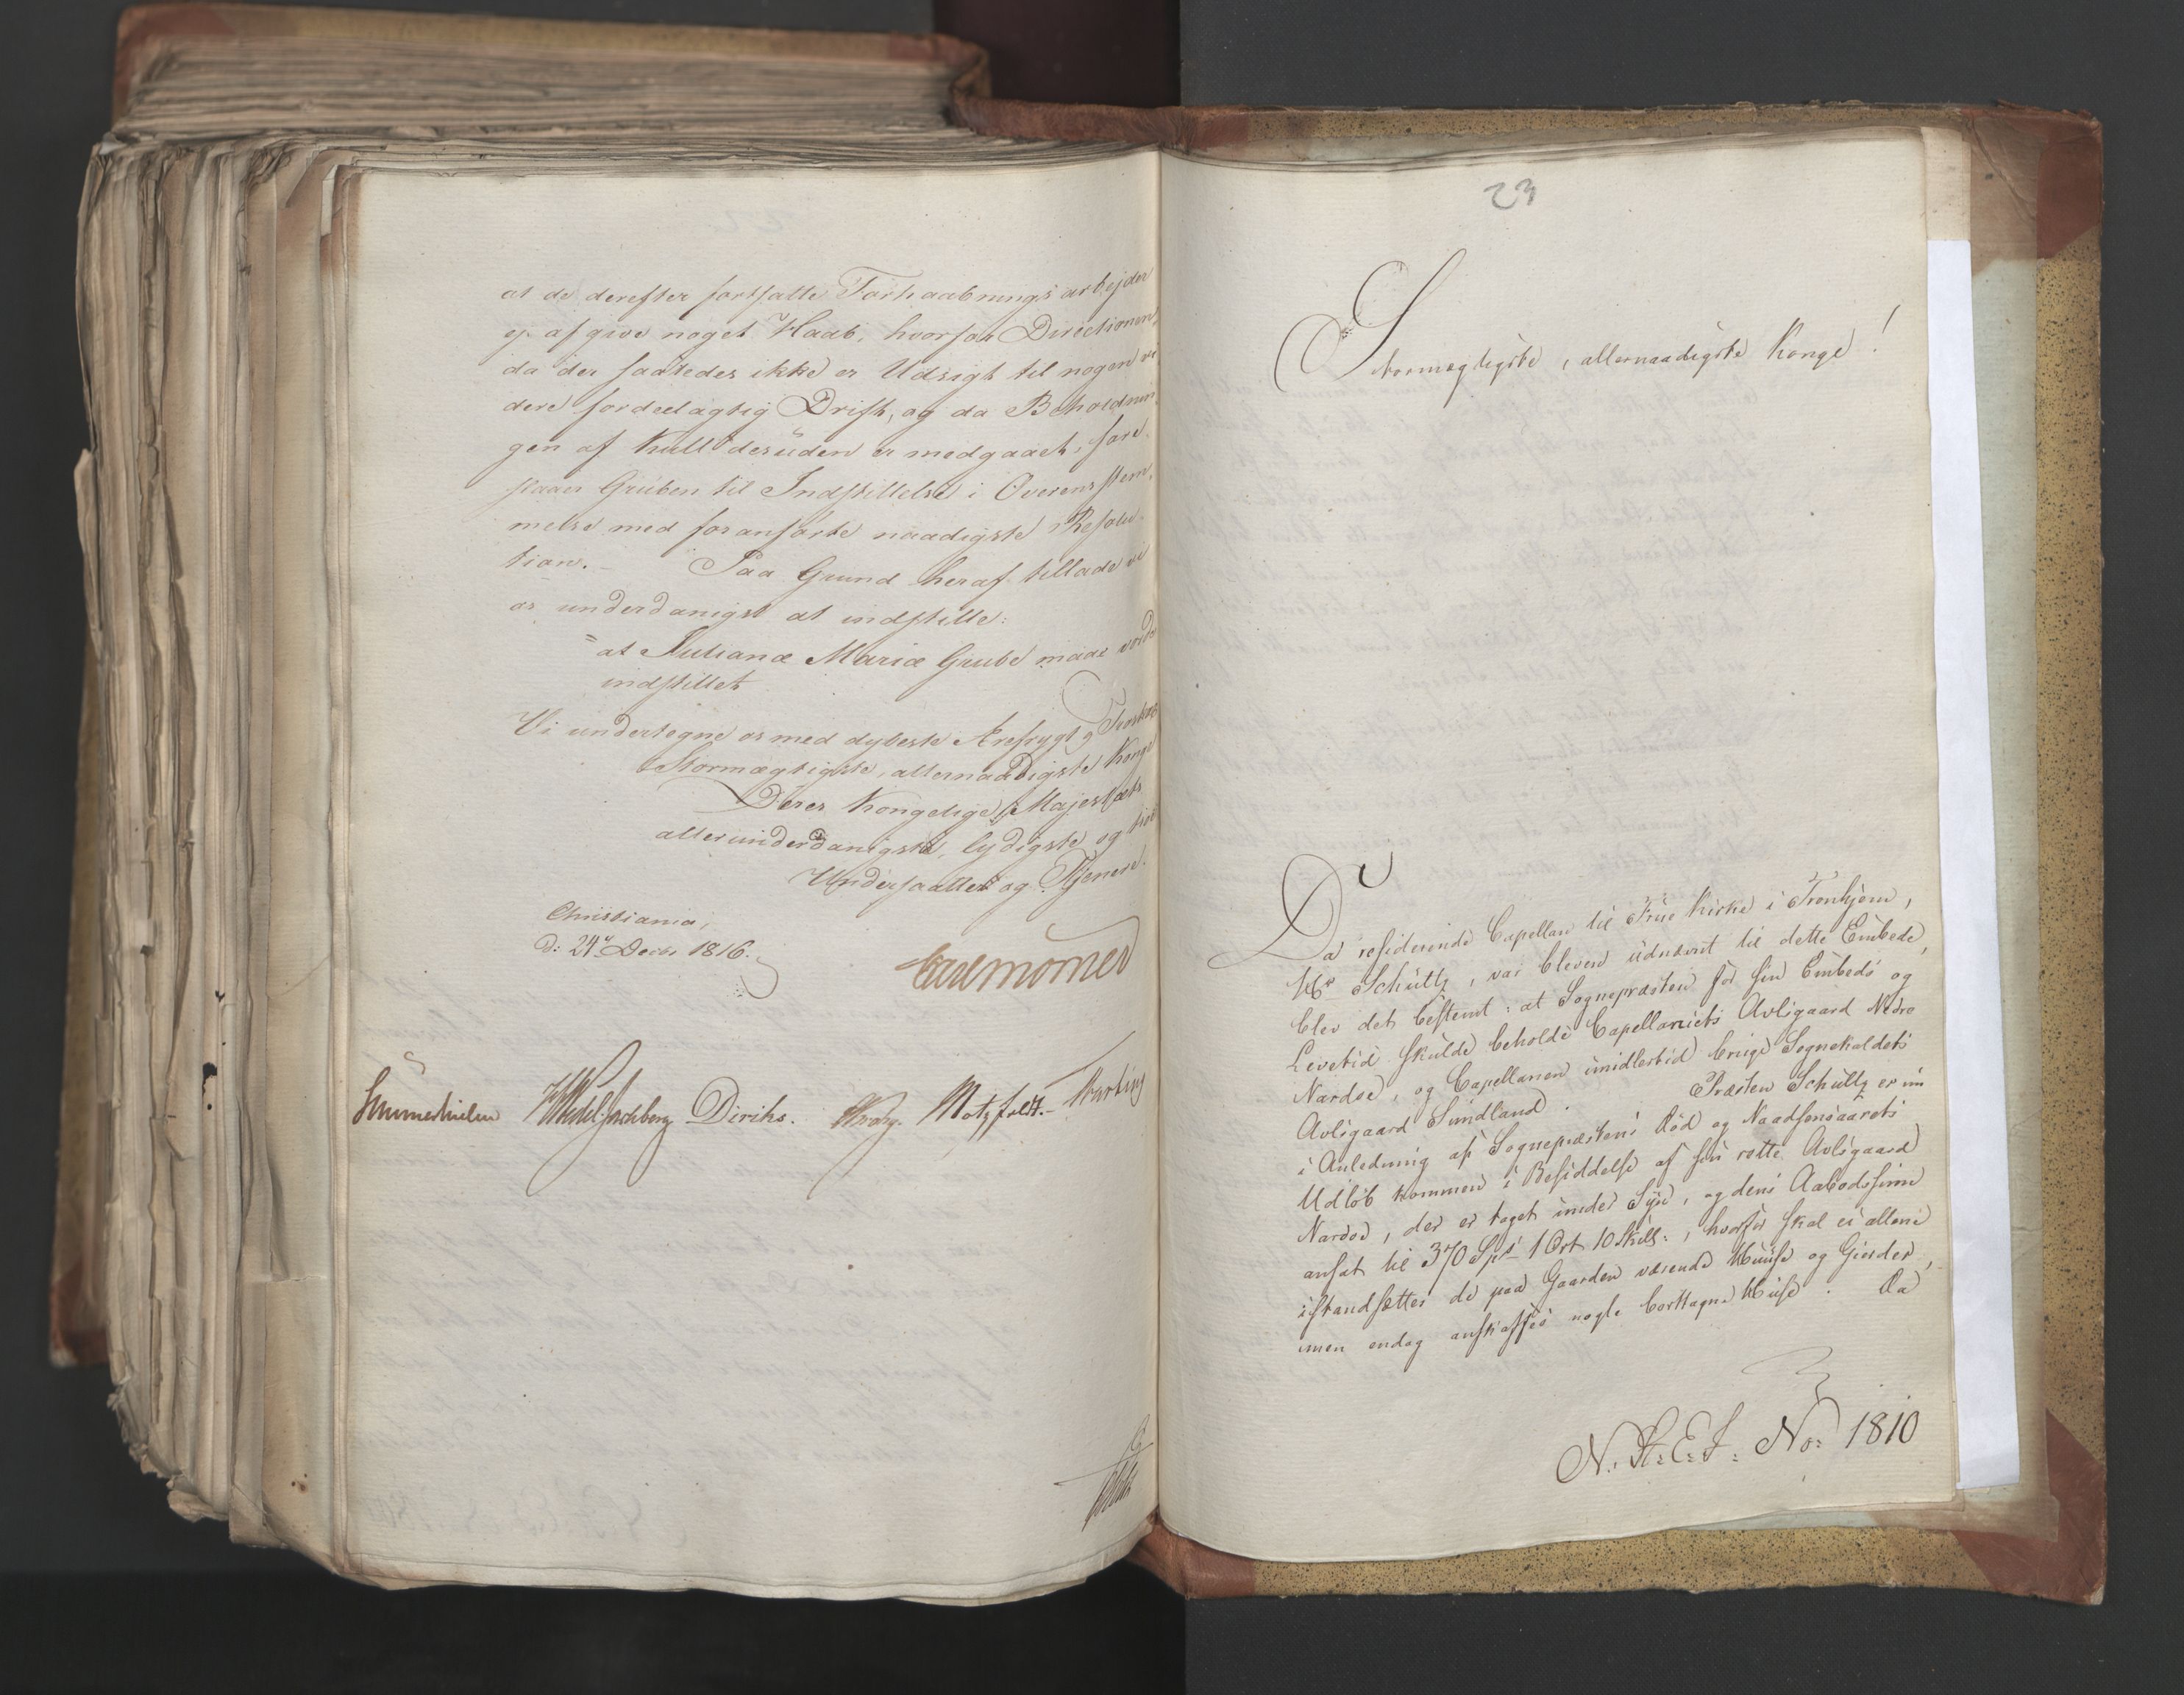 at de derefter fortsatte Forhaabnings arbejder
ej afgive noget Haab; hvorfor Directionen,
da der saaledes ikke er Udsigt til nogen vi
dere fordeelagtig Drift, og da Beholdnin
gen af Kull desuden er medgaaet, fore
slaaer Gruben til Indstillelse i Overensstem,
melse med foranførte naadigste Resolu-
tion. - Paa Grund heraf tillade vi
os underdanigst at indstille:
at Juliane Mariæ Grube maae vorde
indstillet
Vi undertegne os med dybeste Ærefrygt og Troskab
Stormægtigste, allernaadigste Konge
Deres Kongelige Majestæts
allerunderdanigste, lydigste og
Undersaatter og Tjenere.
Christiania,
d: 24de Decbr 1816.
Carl Mörner
Sommerhielm Wedel Jarlsberg Diriks. Krog. Motzfeldt.-
23
Stormægtigste, allernaadigste Konge!
Da residerende Capellan til Frue Kirke i Tronhjem,
Hr Schultz, var bleven udnævnt til dette Embede,
blev det bestemt: at Sognepræsten for sin Embeds og
Levetid skulde beholde Capellaniets Avlsgaard Nedre
Nardoe, og Capellanen imidlertid bruge Sognekaldets
Avlsgaard Sundland. Præsten Schultz er nu
i Anledning af Sognepræstens Død og Naadsensaarets
Udløb kommen i Besiddelse af sin rette Avlsgaard
Nardoe, der er taget under Syn, og dens Aabodssum
ansat til 370 Spd 1 Ort 10 Skill:, hvorfor skal ei allene
istandsættes de paa Gaarden værende Huuse og Gierder,
men endog anskaffes nogle borttagne Huuse. Da
N. St: E: J: No: 1810